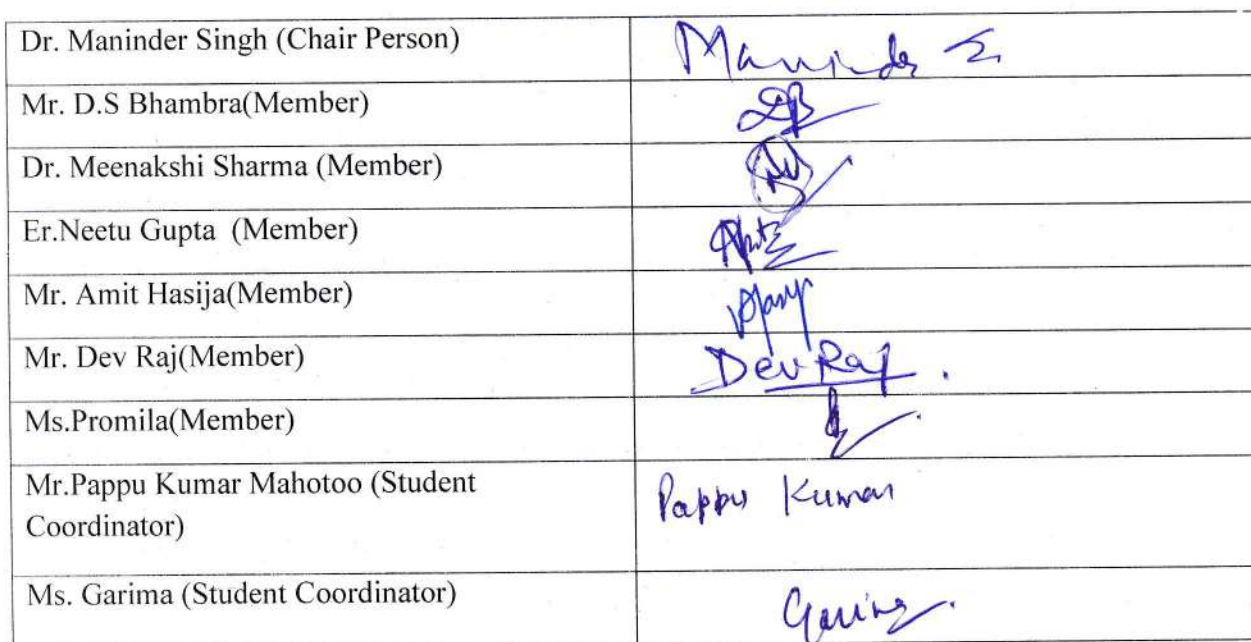 Dr. Maninder Singh (Chair Person) Maninder S
Mr. D.S Bhambra(Member) DB
Dr. Meenakshi Sharma (Member)
Er.Neetu Gupta (Member)
Mr. Amit Hasija(Member)
Mr. Dev Raj(Member) Dev Raj.
Ms.Promila(Member)
Mr.Pappu Kumar Mahotoo (Student
Coordinator)
Pappu Kumar
Ms. Garima (Student Coordinator) Garima.